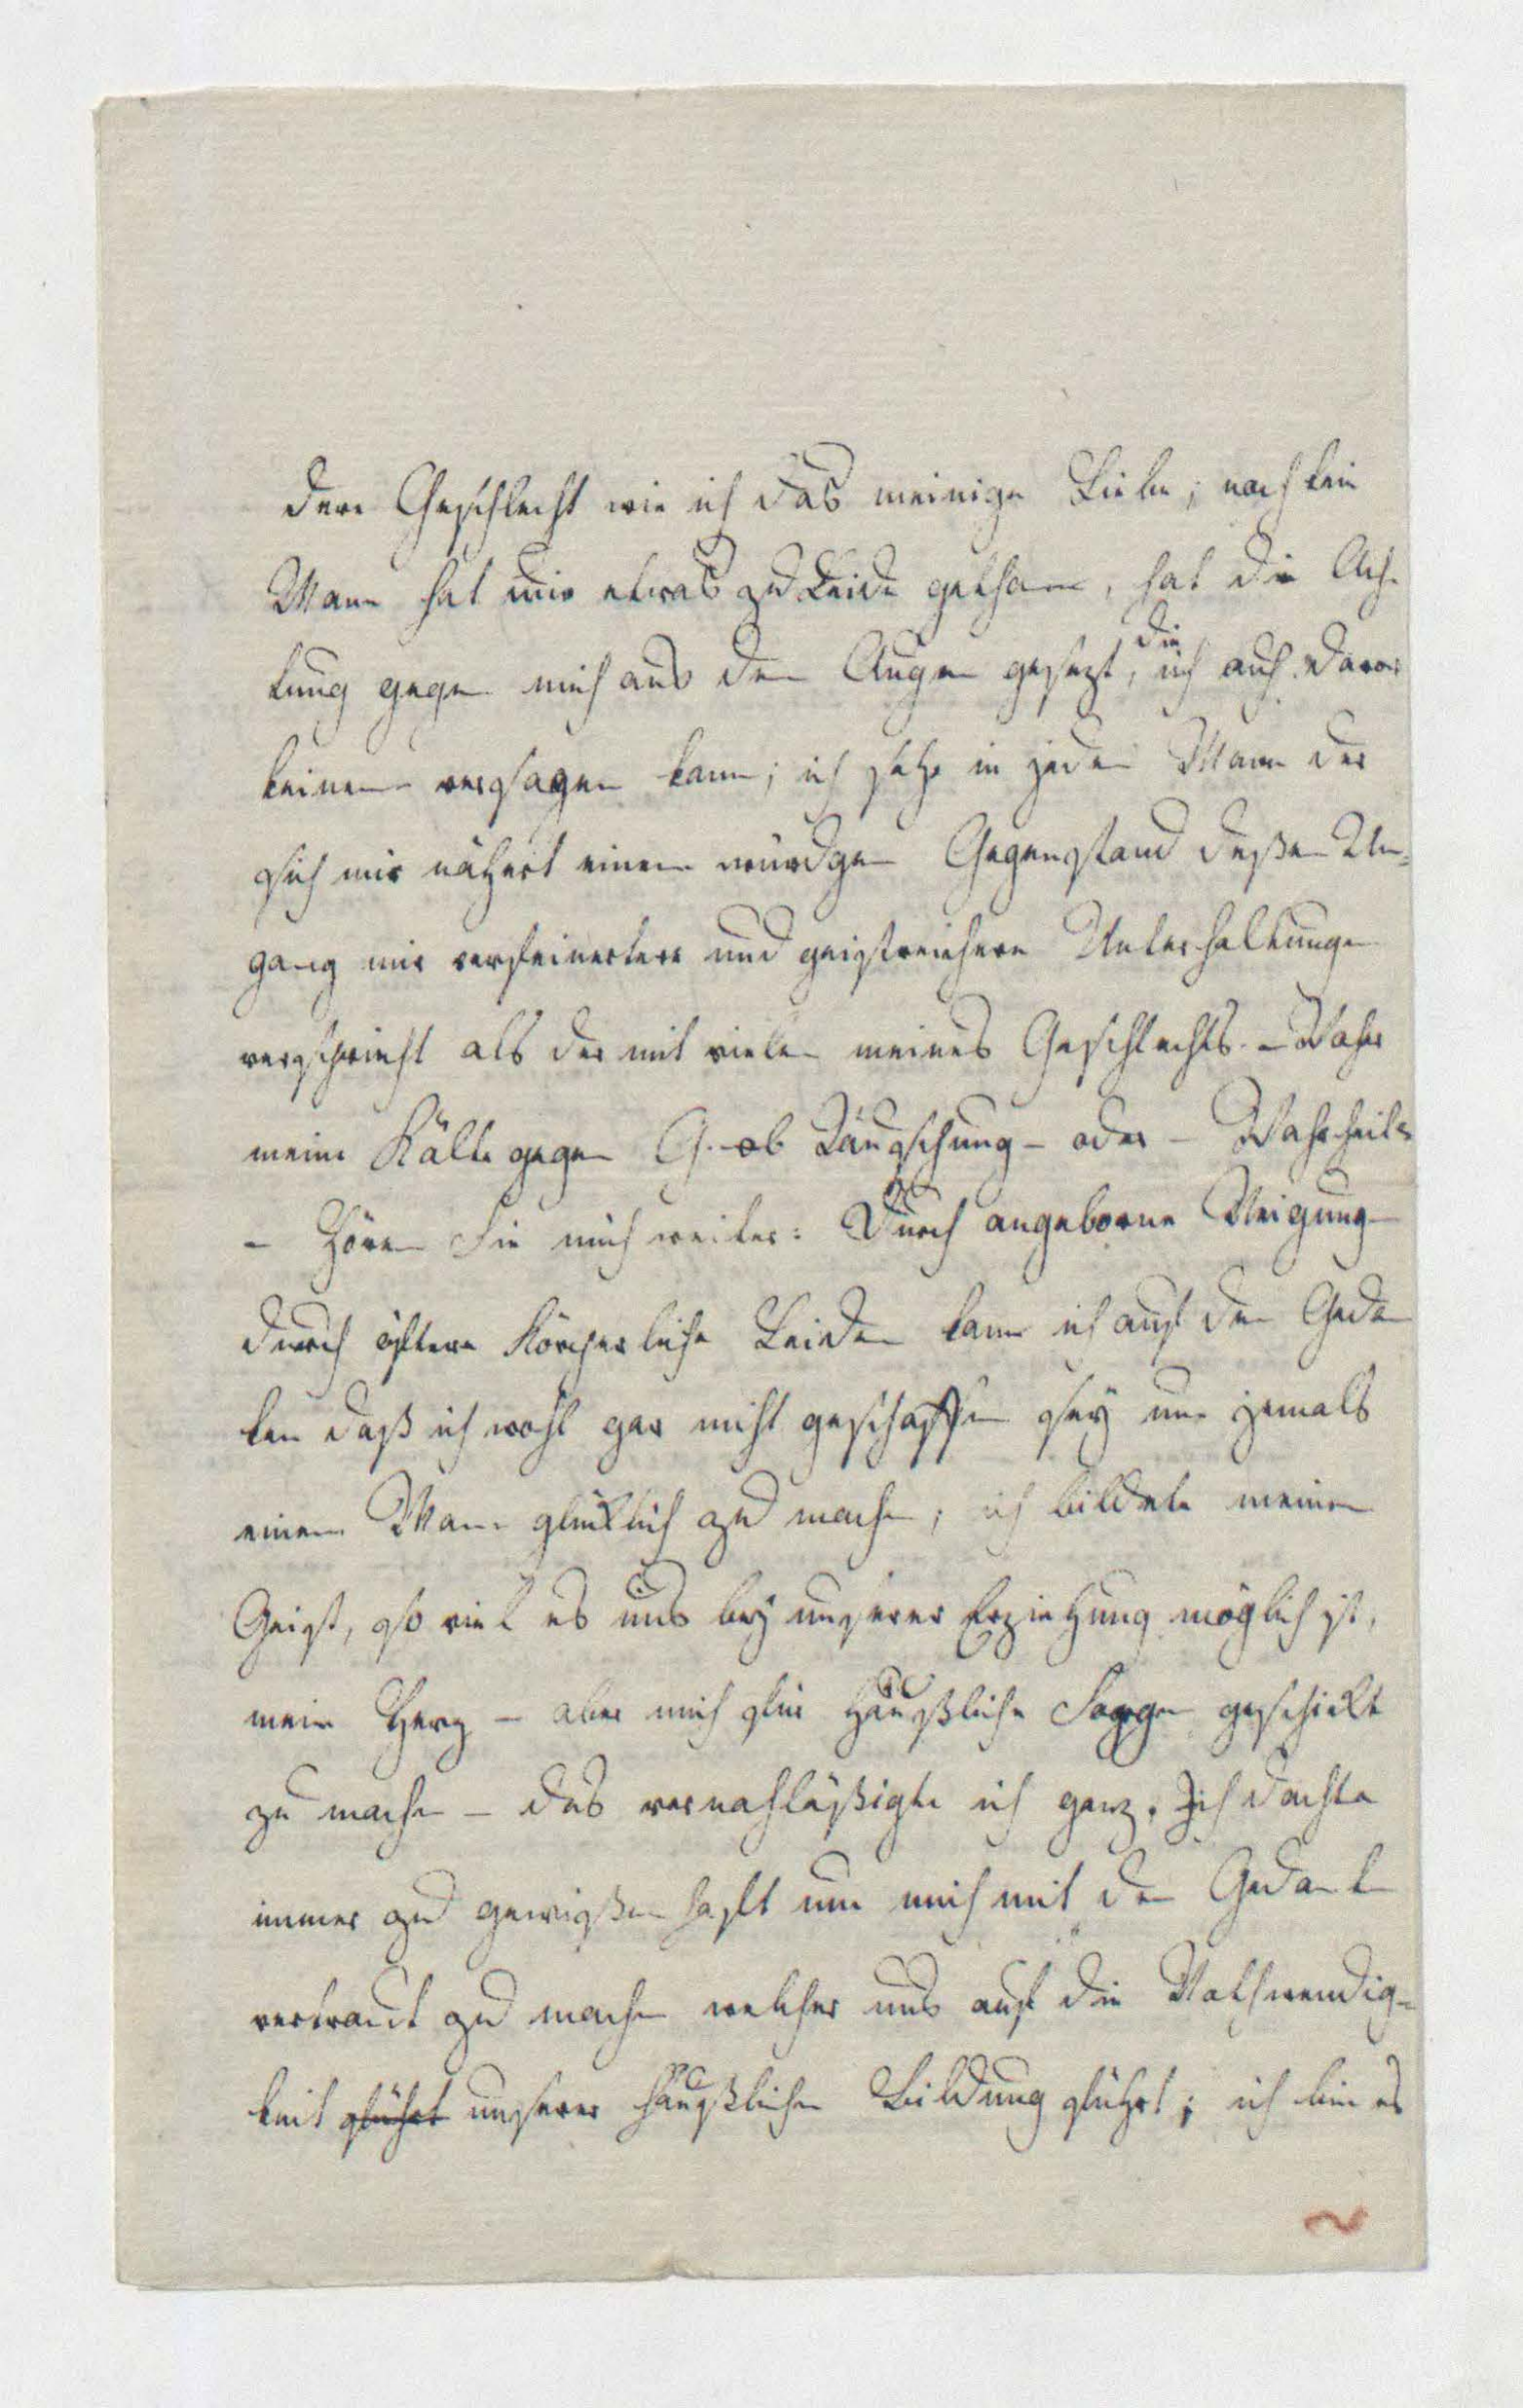 dere Geschlecht wie ich das meinige Liebe; noch kein
Mann hat mir etwas zu Leide gethan, hat die Ach-
die
tung gegen mich aus den Augen gesezt, ich auch davor
keinem versagen kann; ich sehe in jeden Mann der
sich mir nähert einen würdgen Gegenstand deßen Um-
gang mir verfeinertere und geistreichere Unterhaltungen
verspricht als der mit vielen meines Geschlechts. – Daher
meine Kälte gegen G. ob Täuschung – oder – Wahrheit
– Hören Sie mich weiter: Durch angeborne Neigung
durch öftere Körperliche Leiden kam ich auf den Gedan
ken daß ich wohl gar nicht geschaffen sey um jemals
einen Mann glüklich zu machen; ich bildete meinen
Geist, so viel es uns bey unserer Erziehung möglich ist,
mein Herz – aber mich für häußliche Sorgen geschickt
zu machen – das vernachläßigte ich ganz. Ich dachte
immer zu gewißenhaft um mich mit den Gedanken
vertraut zu machen welcher uns auf die Nothwendig-
keit führt unserer häußlichen Bildung führt; ich bin es
2